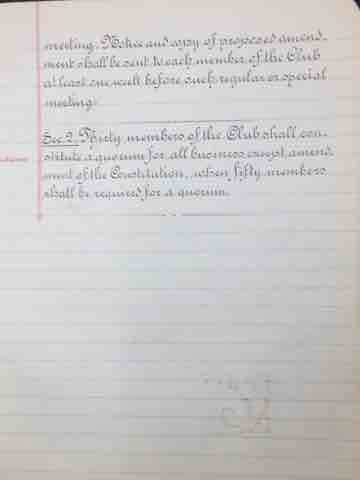 meeting. Notice and copy of proposed amend-
ment shall be sent to each member of the Club
at least one week before such regular or special
meeting.
Sec. 2. Thirty members of the Club shall con-
stitute a quorum for all business except amend-
ment of the Constitution, when fifty members
shall be required for a quorum.